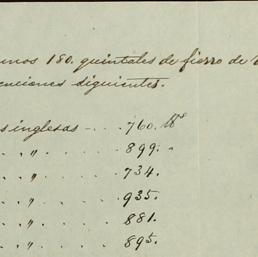 unos 180. quintales de fierro de
enciones siguientes.
s inglesas - . . . 760. lbs
. „ . . . . 899. „
. „ . . . . 734.
. „ . . . . 935.
. „ . . . . 881.
. „ . . . . 895.